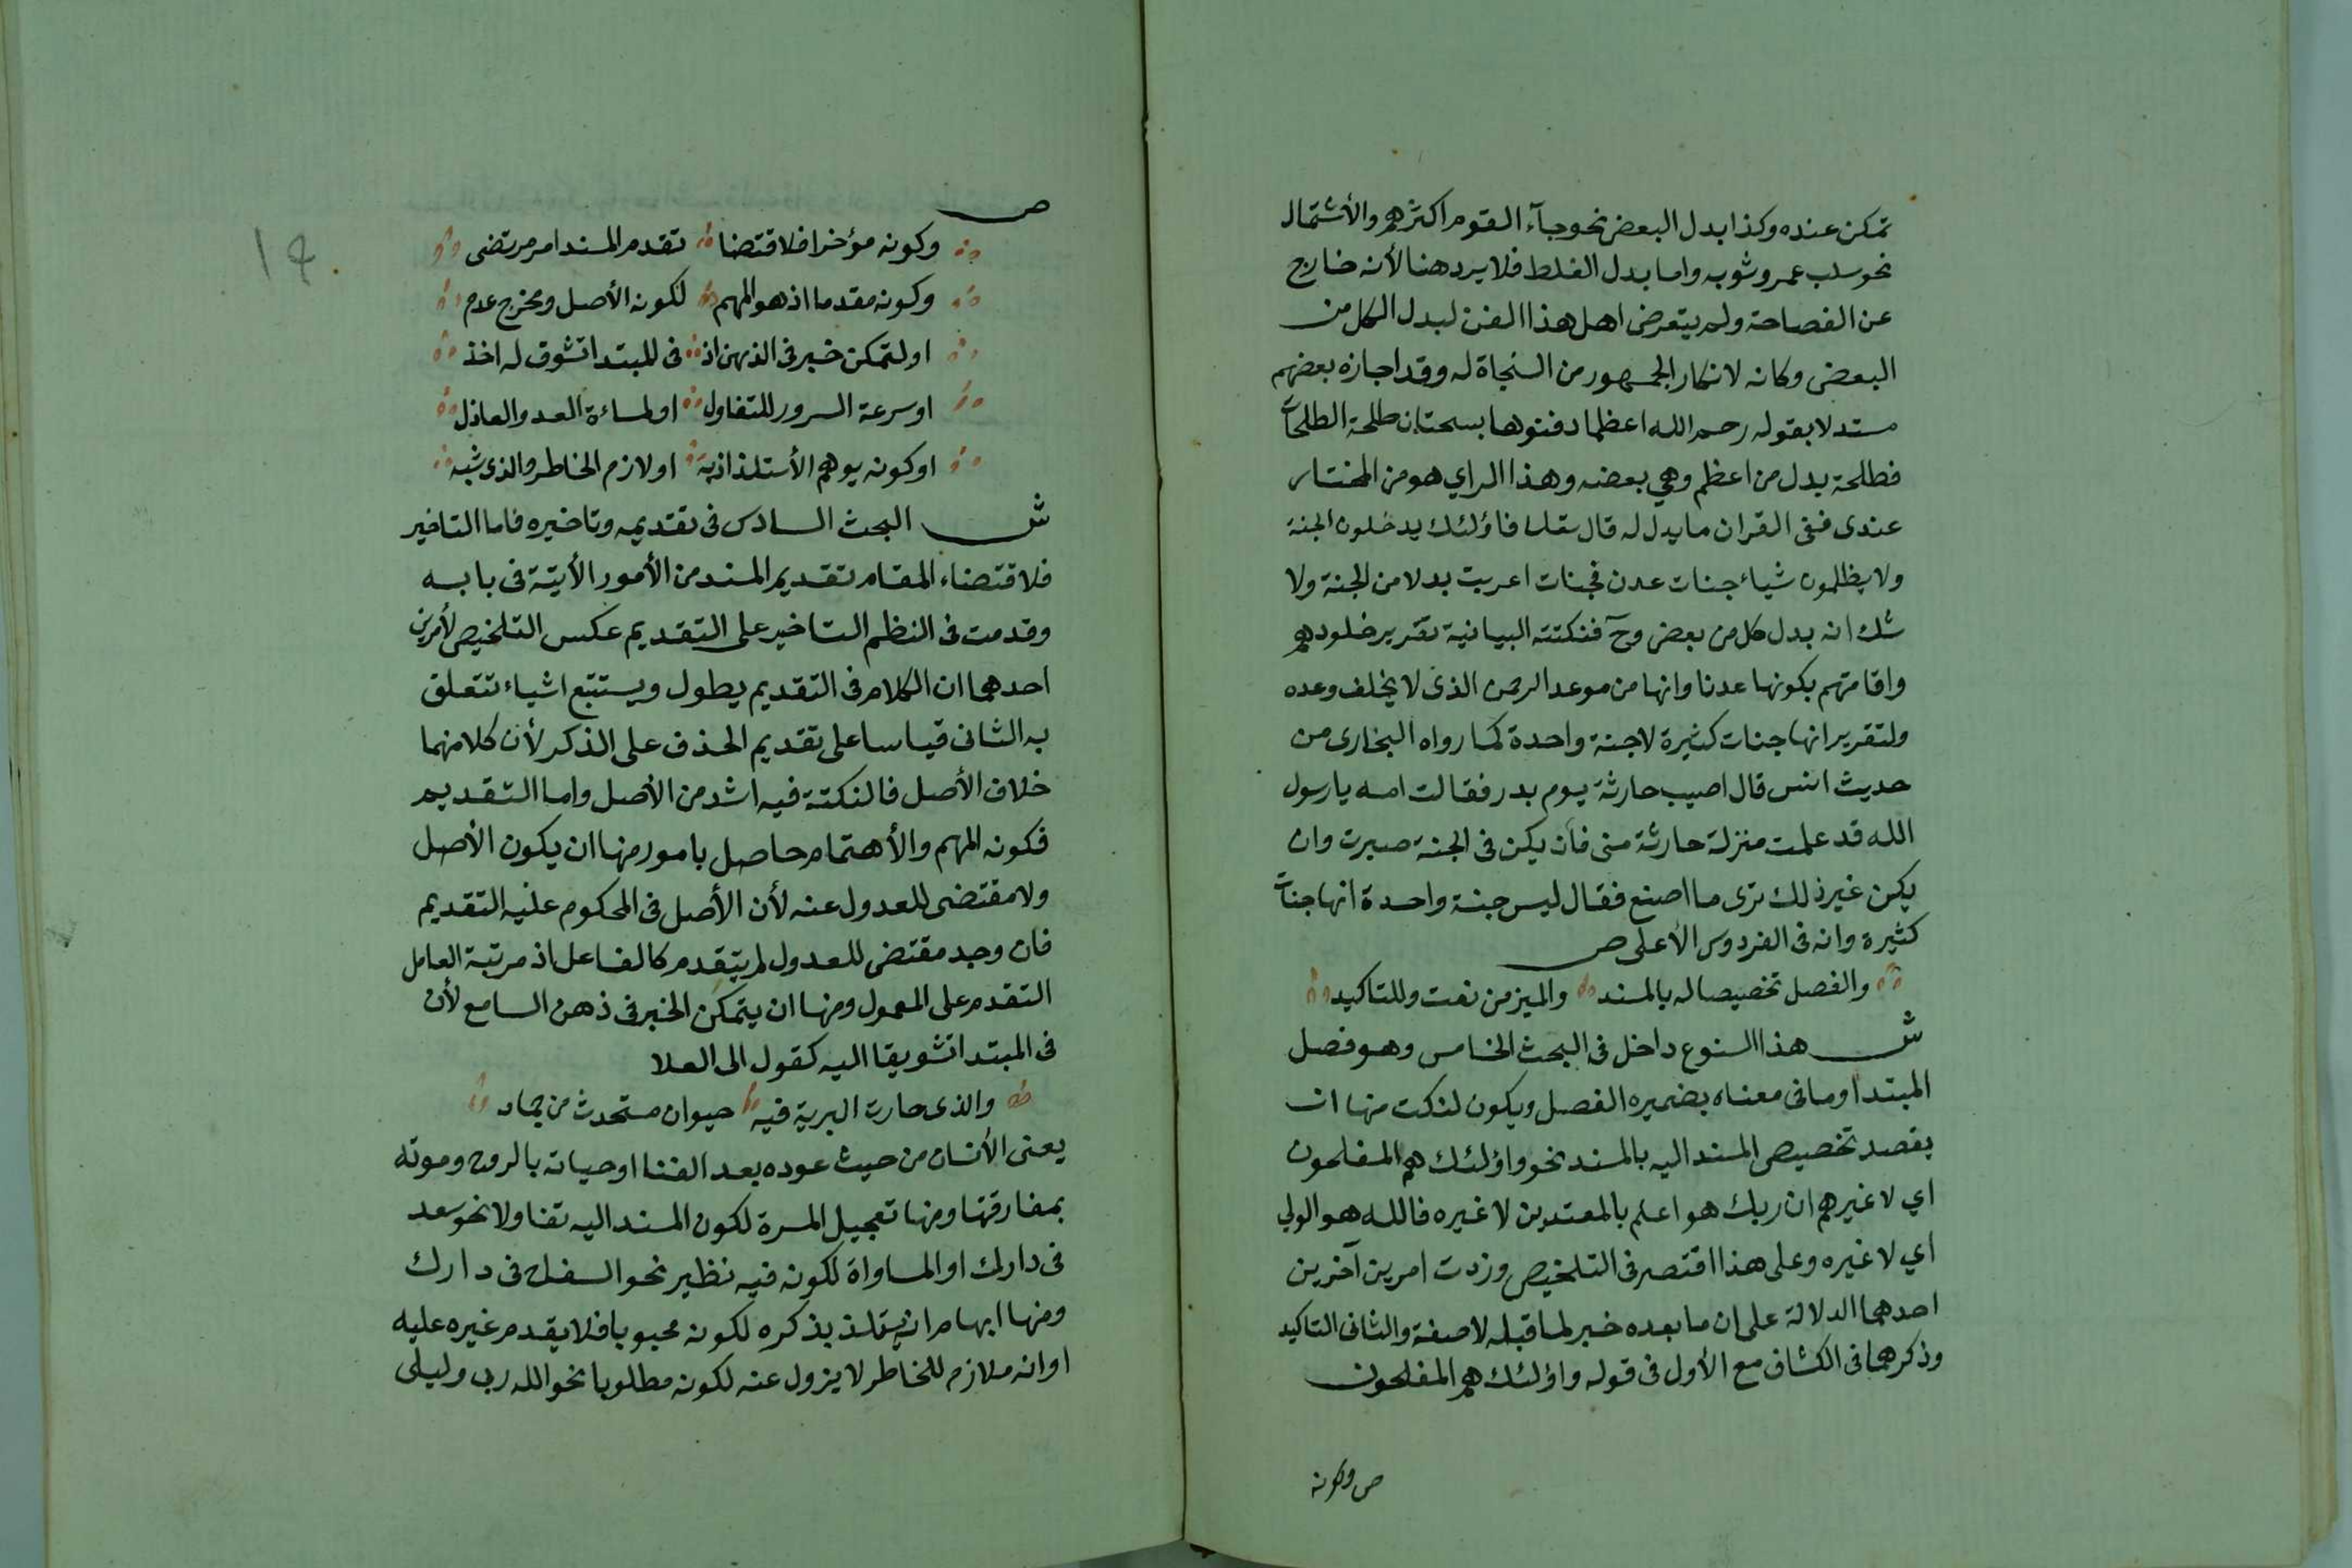 تمكن عنده وكذا بدل البعض نحو جآء القوم اكثرهم والأشتمال
نحو سلب عمرو ثوبه واما بدل الغلط فلا يرد هنا لأنه خارج
عن الفصاحة ولم يتعرض اهل هذا الفن لبدل الكل من
البعض وكانه لانكار الجمهور من النحاة له وقد اجازه بعضهم
مستدلا بقوله رحم الله اعظما دفنوها بسجستان طلحة الطلحات
فطلحة بدل من اعظم وهي بعضه وهذا الراي هو من المختار
عندى ففى القران ما يدل له قال تعالى فاؤلئك يدخلون الجنة
ولا يظلمون شياء جنات عدن فجنات اعربت بدلا من الجنة ولا
شك انه بدل كل من بعض وح فنكتته البيانية تقرير خلودهم
واقامتهم بكونها عدنا وانها من موعد الرحمن الذى لا يخلف وعده
ولتقرير انها جنات كثيرة لا جنة واحدة كما رواه البخارى من
حديث انس قال اصيب حارثة يوم بدر فقالت امه يا رسول
الله قد علمت منزلة حارثة منى فان يكن فى الجنة صبرت وان
يكن غير ذلك ترى ما اصنع فقال ليس جنة واحدة انها جنات
كثيرة وانه فى الفردوس الأعلى ص
والفصل تخصيصا له بالمسند والميز من نعت وللتاكيد
ش هذا النوع داخل فى البحث الخامس وهو فصل
المبتدا وما فى معناه بضميره الفصل ويكون لنكت منها ان
يقصد تخصيص المسند اليه بالمسند نحو واؤلئك هم المفلحون
اي لا غيرهم ان ربك هو اعلم بالمعتدين لا غيره فالله هو الولي
اي لا غيره وعلى هذا اقتصر فى التلخيص وزدت امرين آخرين
احدهما الدلالة على ان ما بعده خبر لما قبله لا صفة والثانى التاكيد
وذكرهما فى الكشاف مع الأول فى قوله واؤلئك هم المفلحون
ص وكونه
١٩
ص
وكونه مؤخرا فلاقتضا تقدم المسند امر مرتضى
وكونه مقدما اذ هو المهم لكونه الأصل ومخرج عدم
او لتمكن خبر فى الذهن اذ فى المبتدا تشوق له اخذ
او سرعة السرور للتفاول او لمساءة العدو العاذل
او كونه يوهم الأستلذاذ به او لازم الخاطر والذى شبه
ش البحث السادس فى تقديمه وتاخيره فاما التاخير
فلاقتضاء المقام تقديم المسند من الأمور الأتية فى بابه
وقدمت فى النظم التاخير على التقديم عكس التلخيص لأمرين
احدهما ان الكلام فى التقديم يطول ويستتبع اشياء تتعلق
به الثانى قياسا على تقديم الحذف على الذكر لأن كلا منهما
خلاف الأصل فالنكتة فيه اشد من الأصل واما التقديم
فكونه المهم والأهتمام حاصل بامور منها ان يكون الأصل
ولا مقتضى للعدول عنه لأن الأصل فى المحكوم عليه التقديم
فان وجد مقتضى للعدول لم يتقدم كالفاعل اذ مرتبة العامل
التقدم على المعمول ومنها ان يتمكن الخبر فى ذهن السامع لأن
فى المبتدا تشويقا اليه كقول ابى العلا
والذى حارت البرية فيه حيوان مستحدث من جماد
يعنى الأنسان من حيث عوده بعد الفنا او حياته بالروح وموته
بمفارقتها ومنها تعجيل المسرة لكون المسند اليه تفاولا نحو سعد
فى دارك او المساواة لكونه فيه نظير نحو السفاح فى دارك
ومنها ايهام انه يستلذ بذكره لكونه محبوبا فلا يقدم غيره عليه
او انه ملازم للخاطر لا يزول عنه لكونه مطلوبا نحو الله ربى وليلى